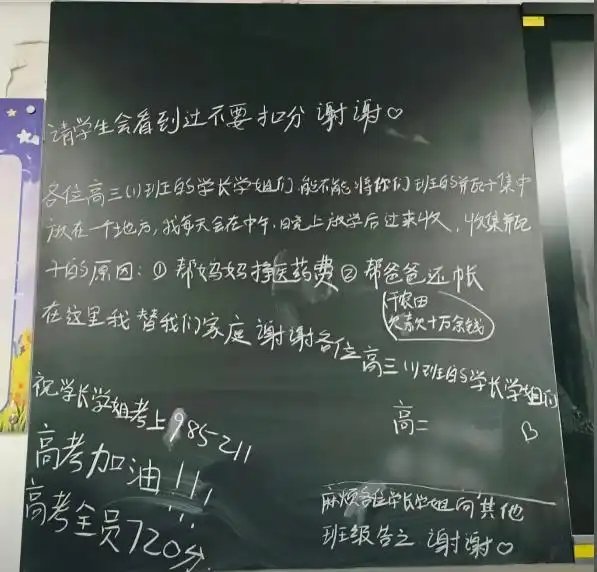 请学生会看到过不要扣分 谢谢♡
各位高三(1)班的学长学姐们,能不能将你们班的瓶子集中
放在一个地方,我每天会在中午、晚上放学后过来收,收集瓶
子的原因:① 帮妈妈挣医药费② 帮爸爸还帐
(承包田
欠款十万余钱)
在这里我替我们家庭谢谢各位高三(1)班的学长学姐们
高二
祝学长学姐考上985211
高考加油!!!
高考全员720分
麻烦各位学长学姐向其他
班级告之 谢谢♡